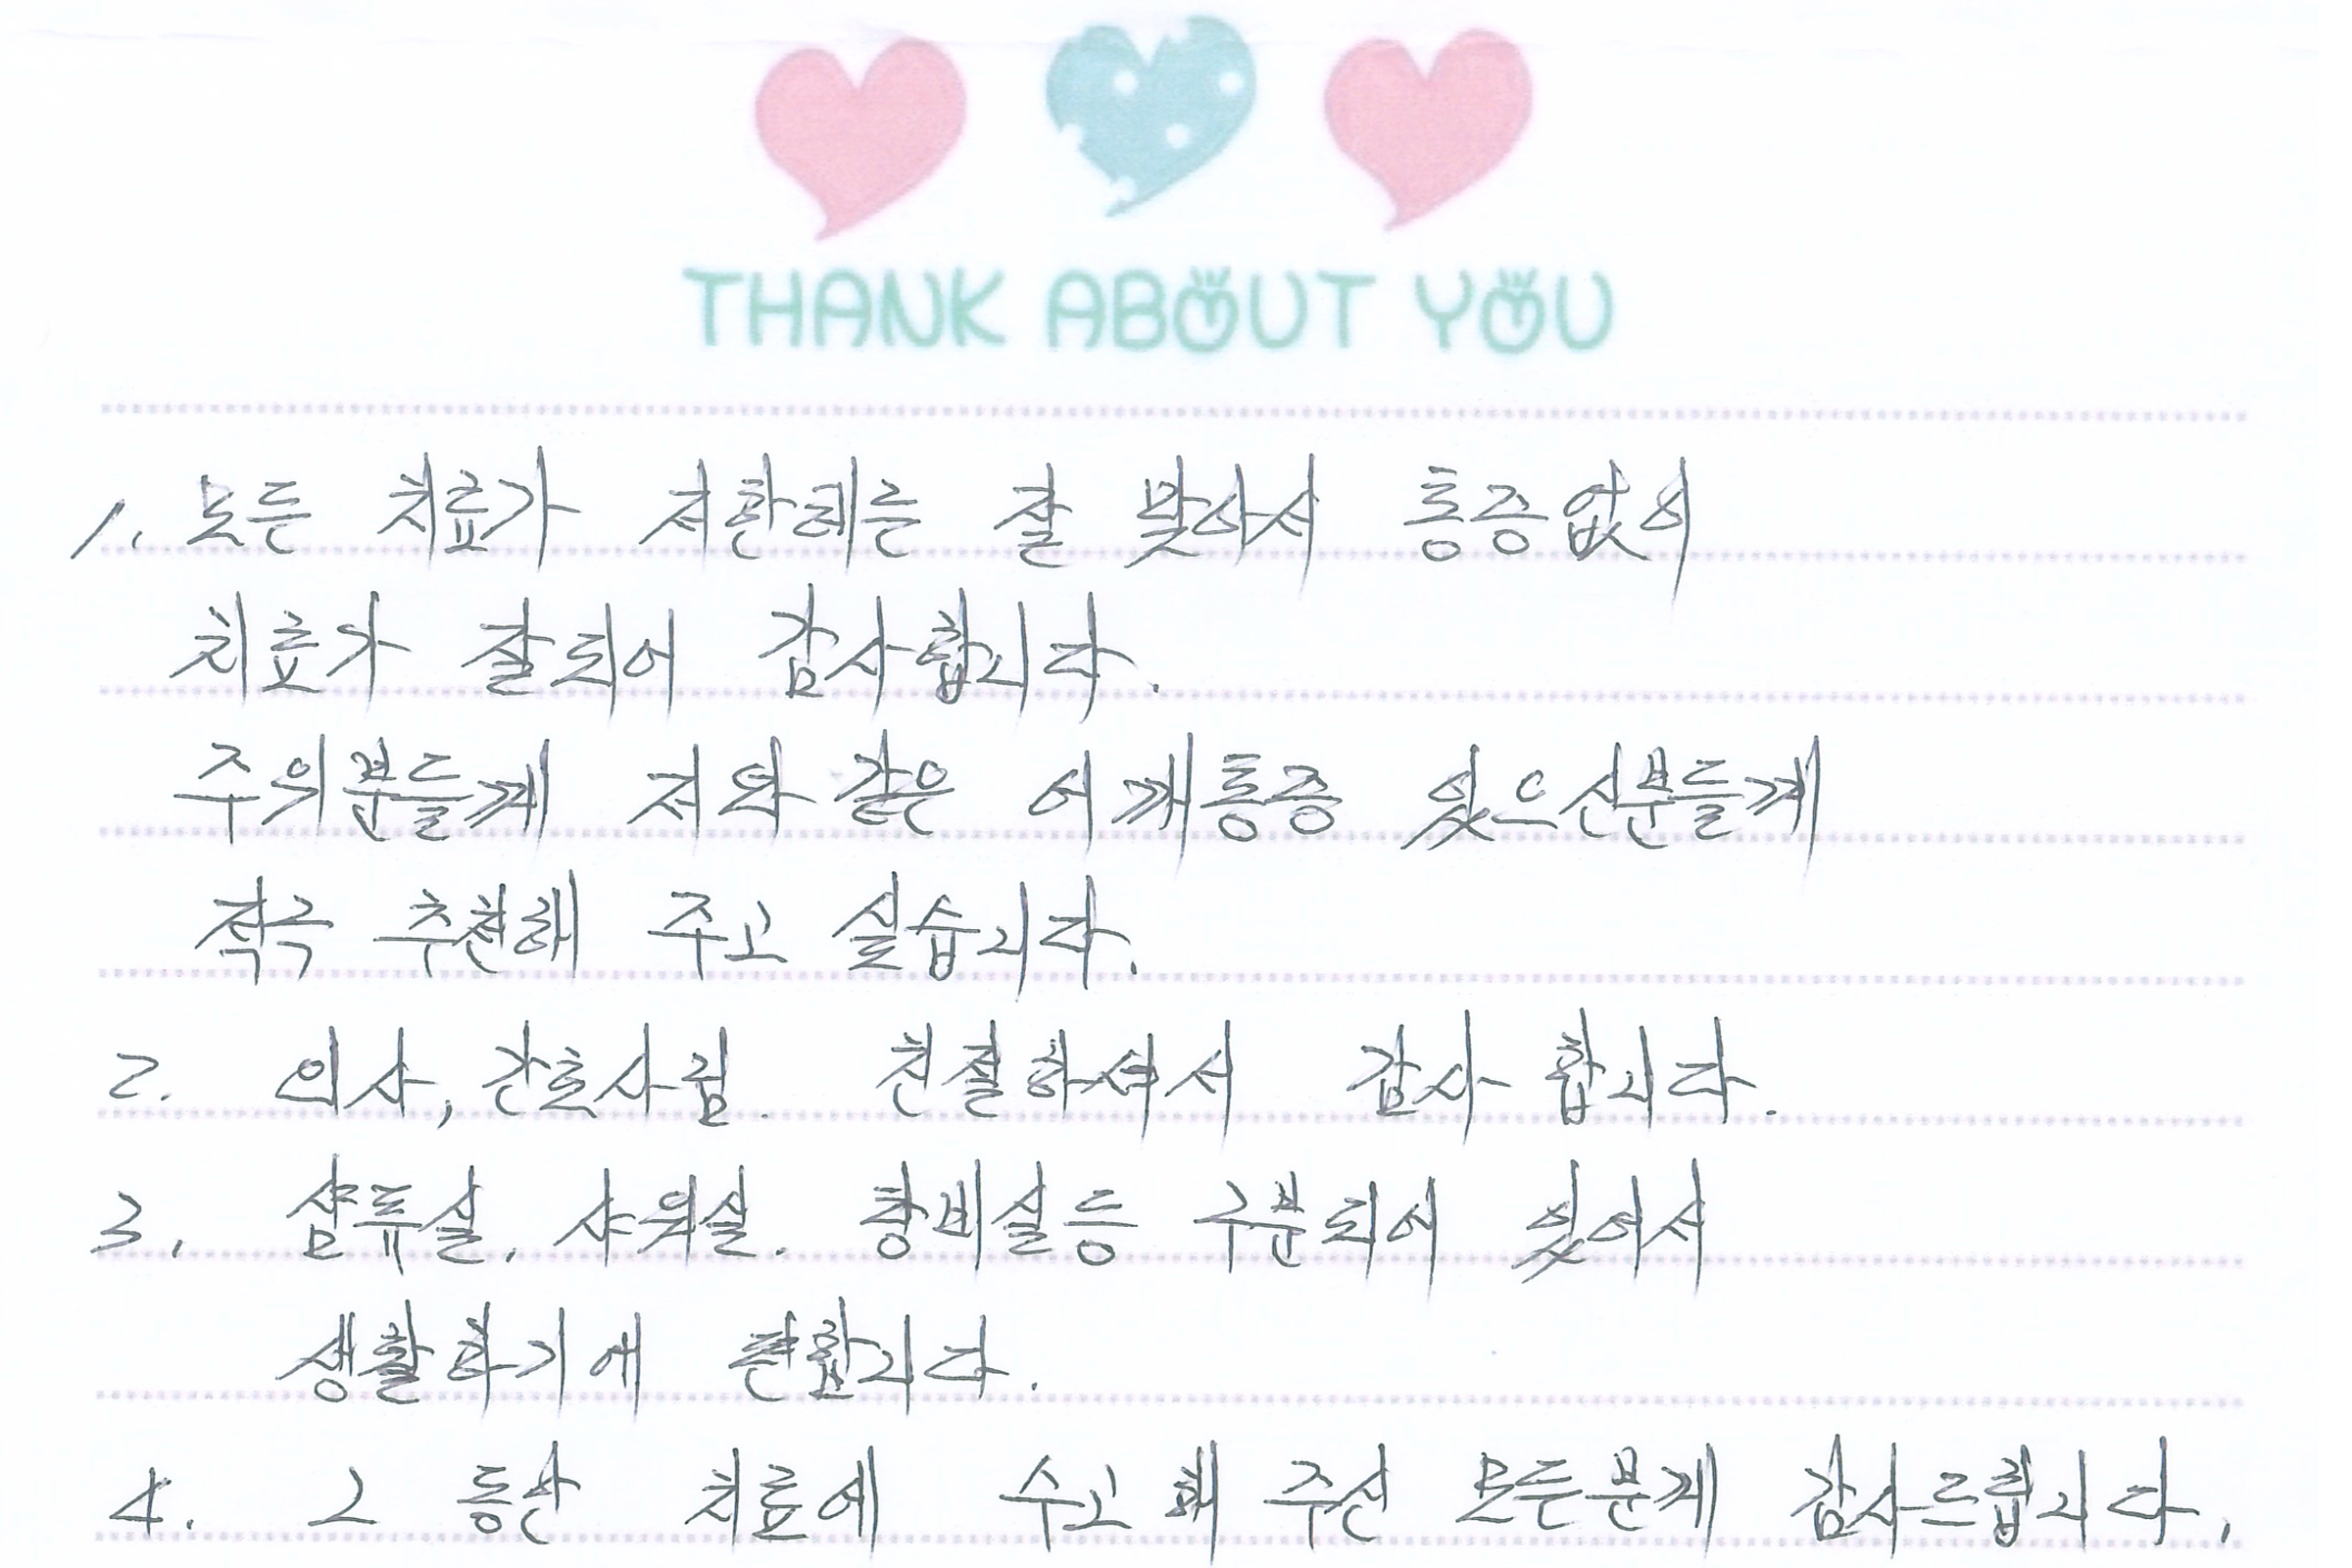 THANK ABOUT YOU
1. 모든 치료가 저한테는 잘 맞아서 통증없이
치료가 잘되어 감사합니다.
주위분들께 저와 같은 어깨통증 있으신분들께
적극 추천해 주고 싶습니다.
2. 의사, 간호사님. 친절하셔서 감사 합니다.
3. 샴푸실. 샤워실. 탕비실등 구분되어 있어서
생활하기에 편합니다.
4. 그 동안 치료에 수고 해 주신 모든분께 감사드립니다.